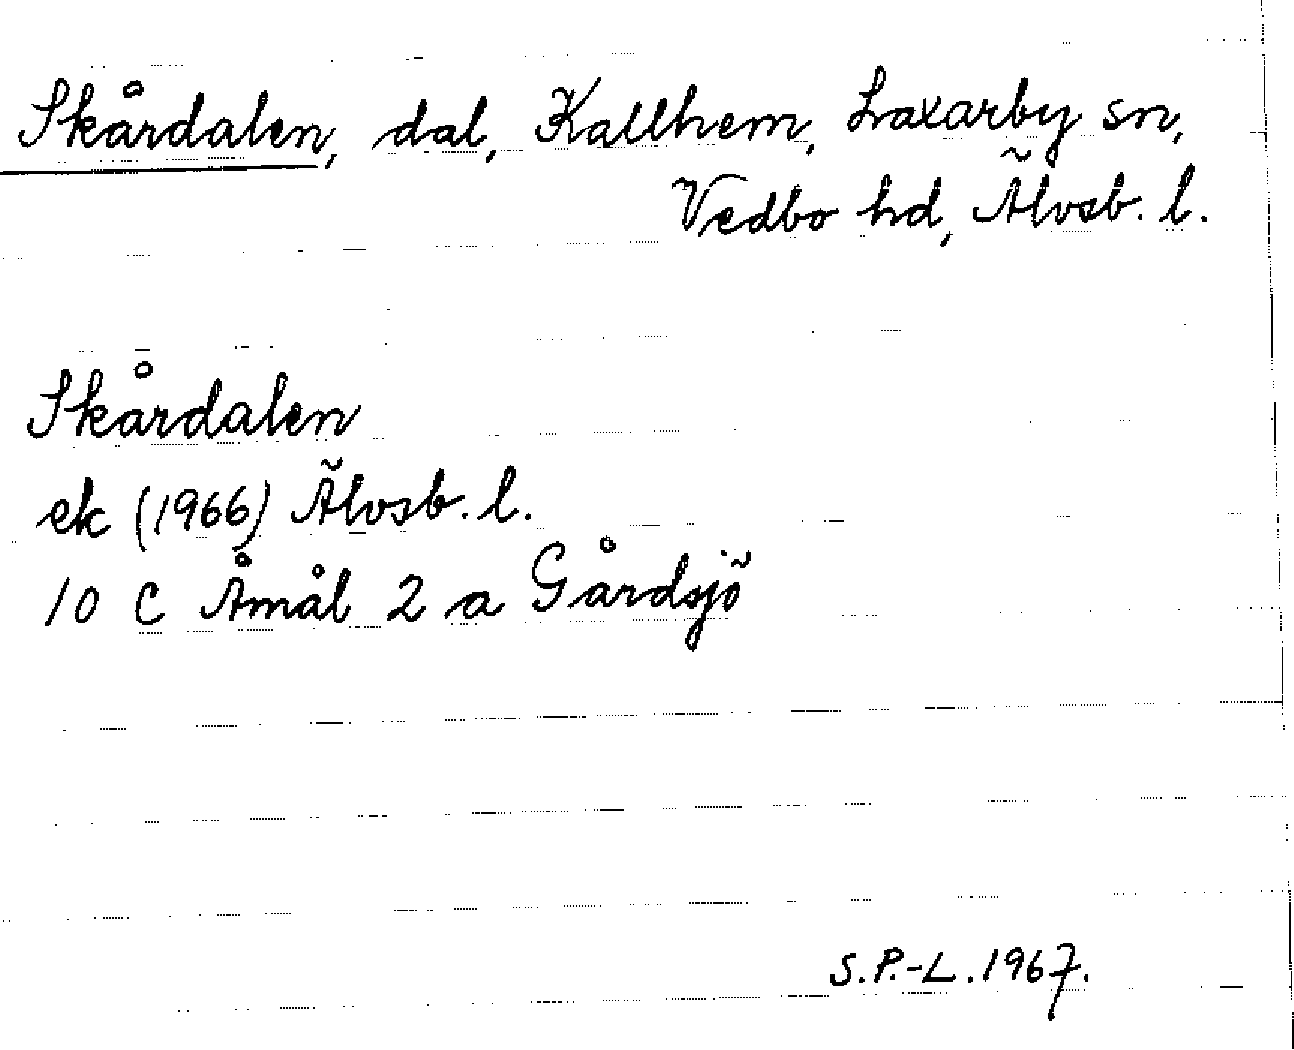 Skårdalen, dal, Kallhem, Laxarby sn,
Vedbo hd, Älvsb. l.
Skårdalen
ek (1966) Älvsb. l.
10 C Åmål 2 a Gårdsjö
S.P.-L. 1967.